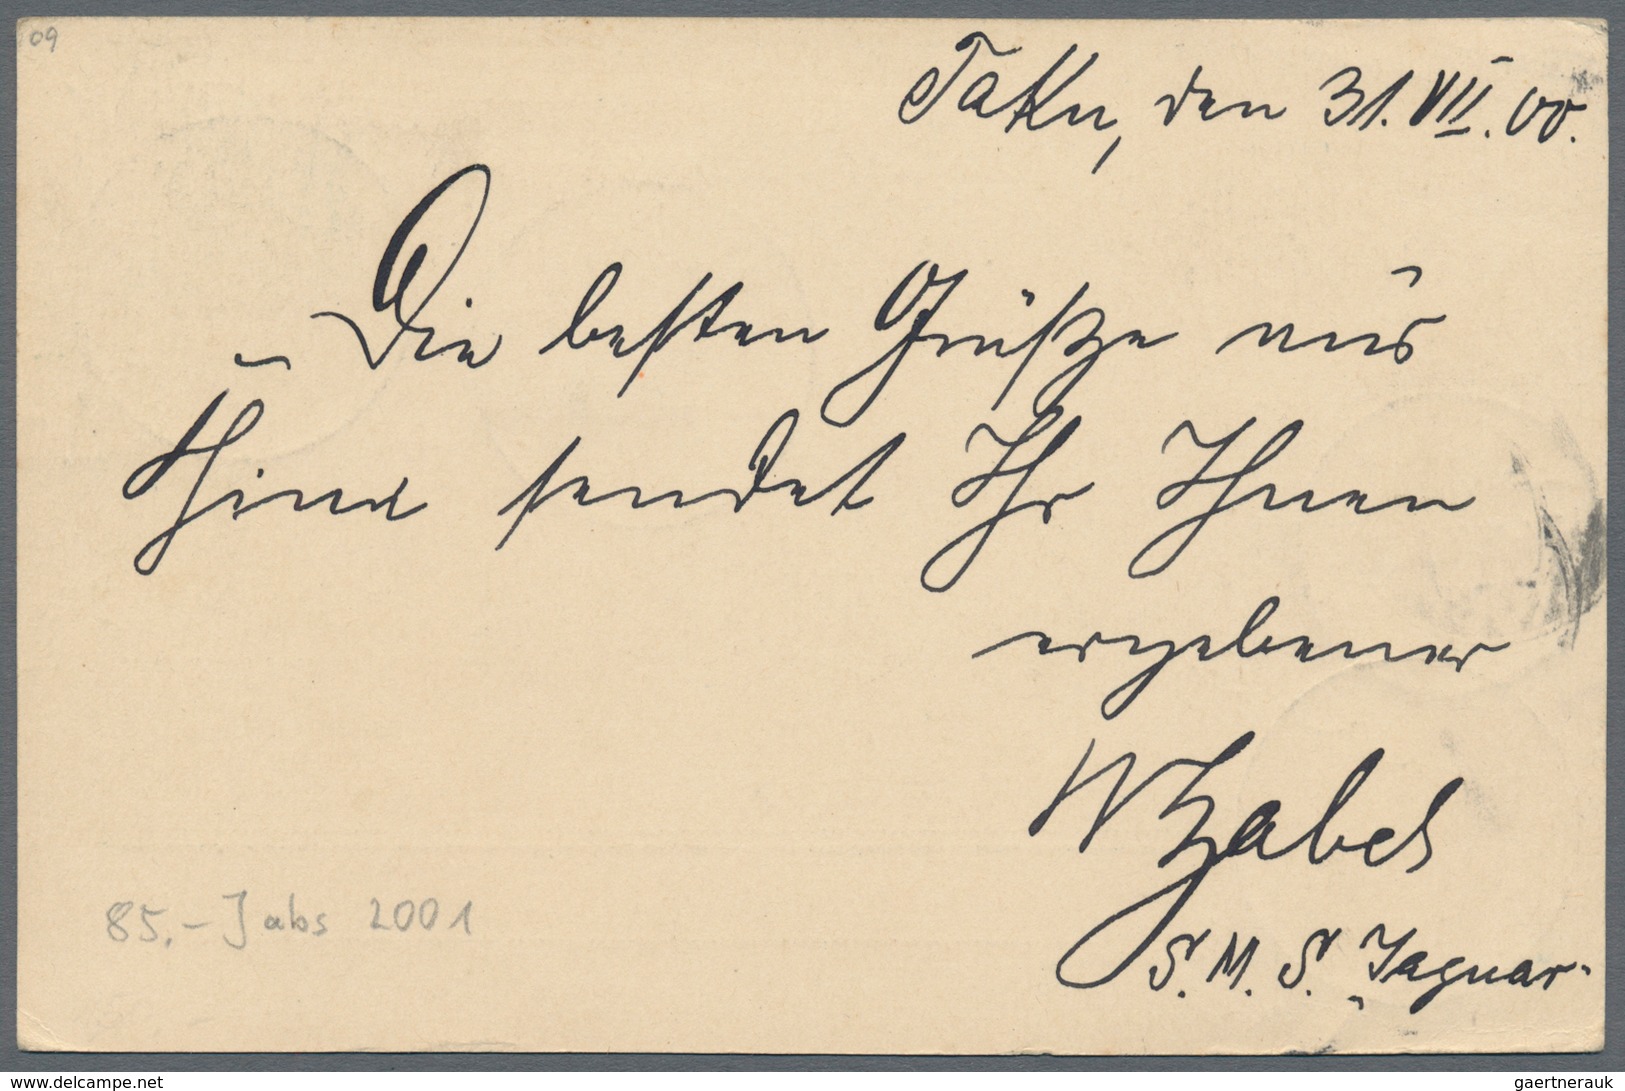 09
Taku, den 31. VII. 00.
Die besten Grüße aus
China sendet Ihr Ihnen
ergebener
W Zabel
S. M. S. „Jaguar"
85.- Jabs 2001
www.delcampe.net
gaertnerauk